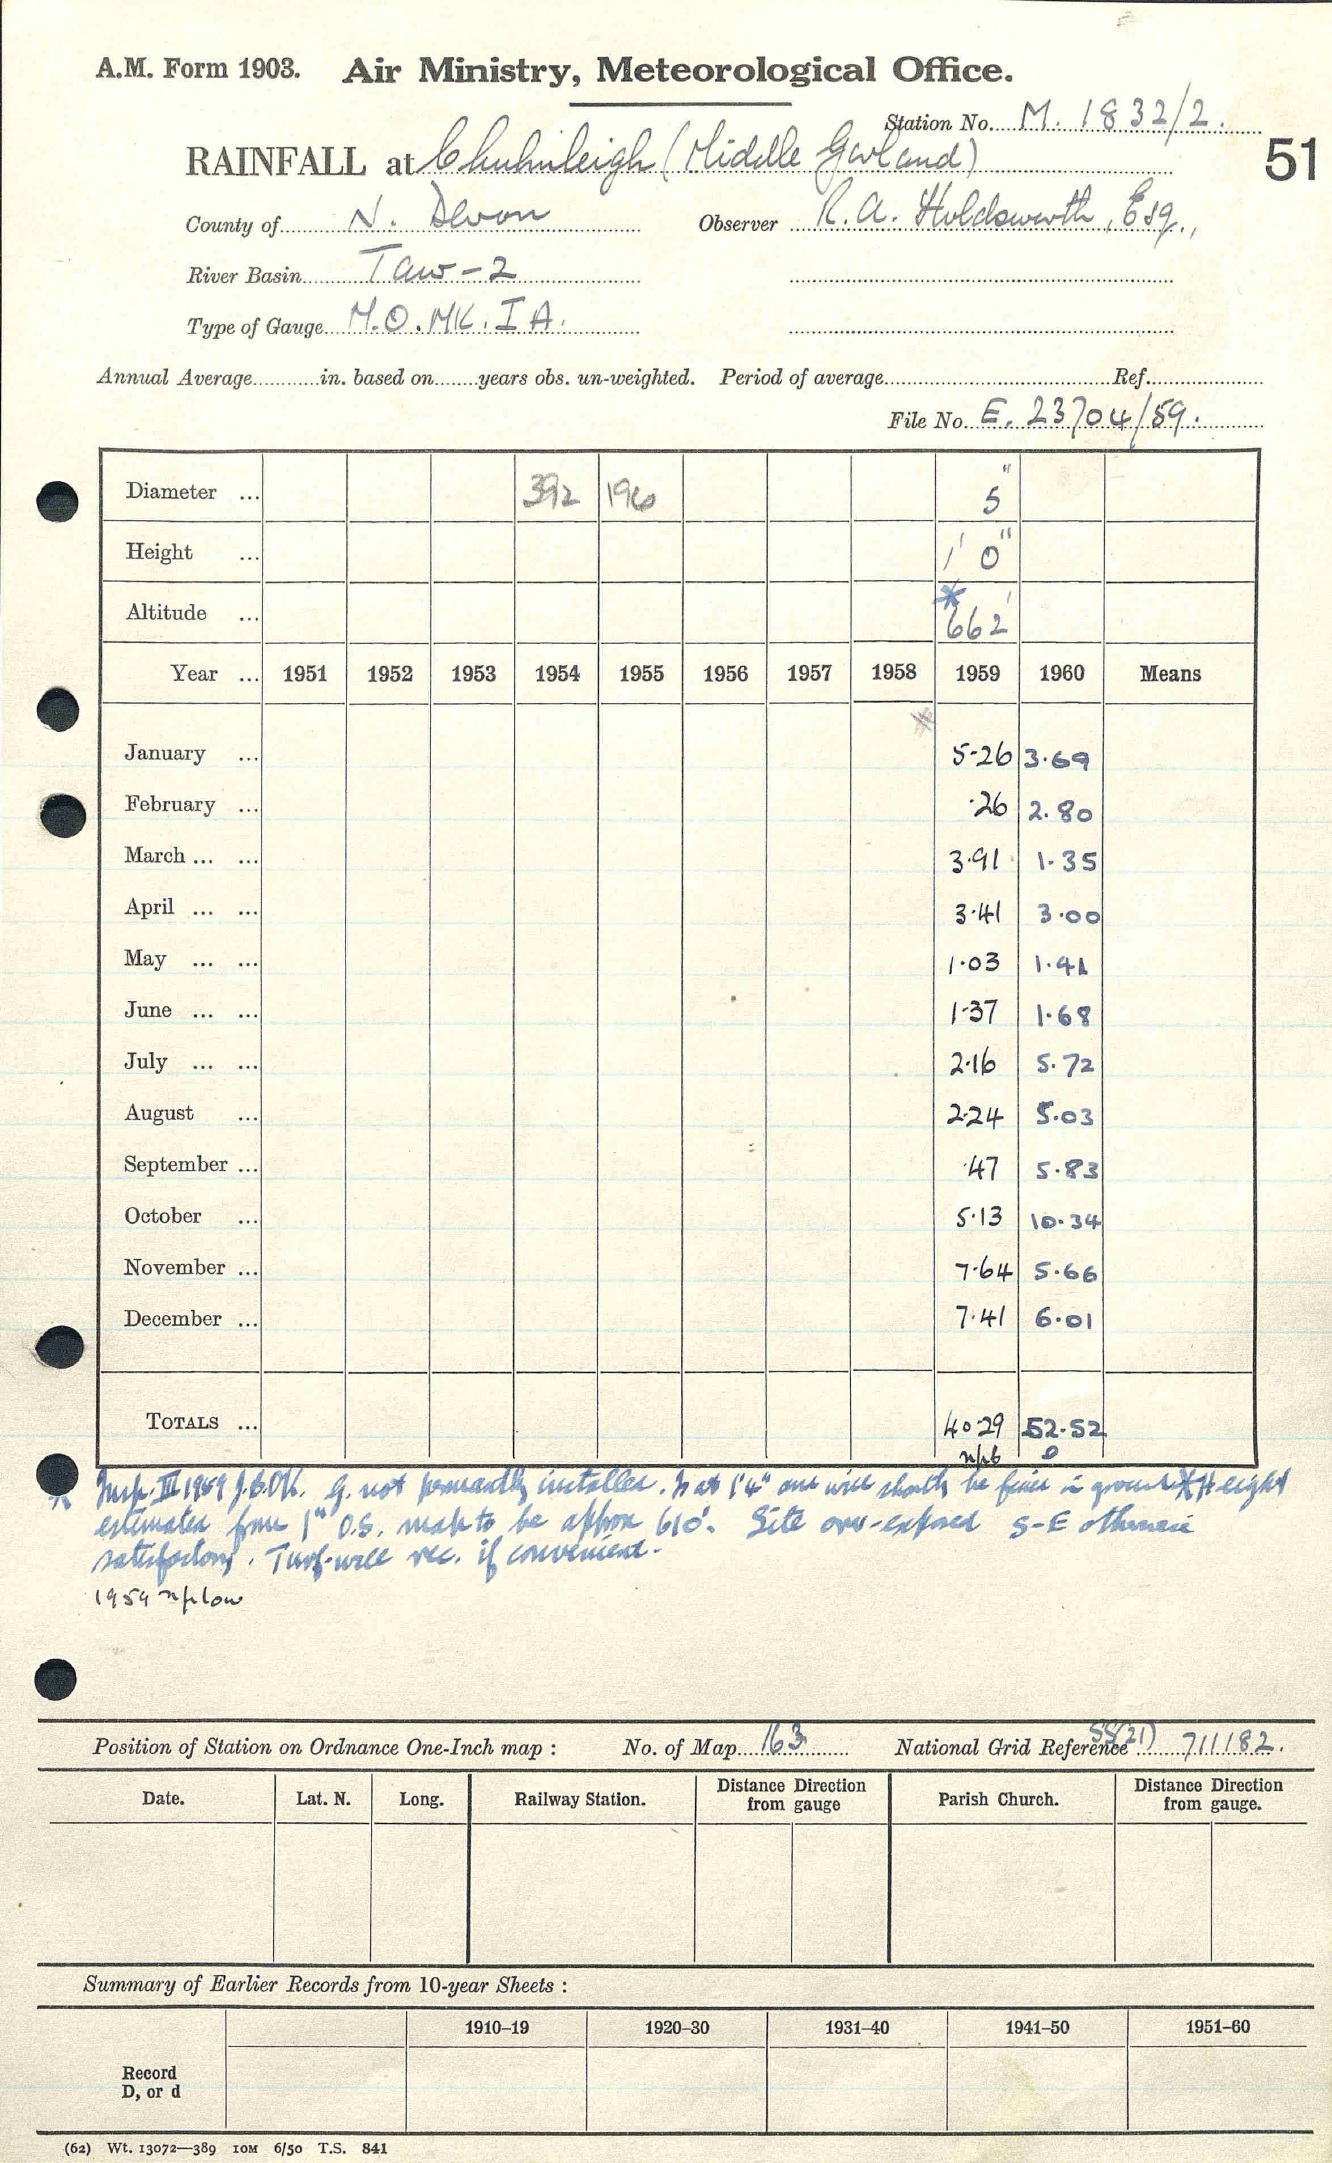 A.M. Form 1903. Air Ministry, Meteorological Office.
Station No. M. 1832/2.
51
RAINFALL at Chulmleigh (Middle Garland)
County of N. Devon Observer R.A. Holdsworth, Esq.,
River Basin Taw-2
Type of Gauge M.O. MK. IA.
Annual Average in. based on years obs. un-weighted. Period of average Ref.
File No. E. 23704/59.
Diameter ... 392 196 5"
Height ... 1' 0"
Altitude ... * 662'
Year ... 1951 1952 1953 1954 1955 1956 1957 1958 1959 1960 Means
*
January ... 5·26 3·69
February ... ·26 2.80
March ... ... 3·91 1·35
April ... ... 3·41 3·00
May ... ... 1·03 1·41
June ... ... 1·37 1·68
July ... ... 2·16 5·72
August ... 2·24 5·03
September ... ·47 5·83
October ... 5·13 10·34
November ... 7·64 5·66
December ... 7·41 6·01
TOTALS ... 40·29 52·52
* Insp. III 1959 J.G.O'K. G. not permanently installed. Is at 1'4" and will shortly be fixed in ground * Height
estimated from 1" O.S. map to be approx 610'. Site over-exposed S-E otherwise
satisfactory. Turf-wall rec. if convenient.
1959 low
Position of Station on Ordnance One-Inch map : No. of Map 163 National Grid Reference SS(21) 711182.
Date. Lat. N. Long. Railway Station. Distance Direction from gauge Parish Church. Distance Direction from gauge.
Summary of Earlier Records from 10-year Sheets :
1910–19 1920–30 1931–40 1941–50 1951–60
Record
D, or d
(62) Wt. 13072—389 10M 6/50 T.S. 841